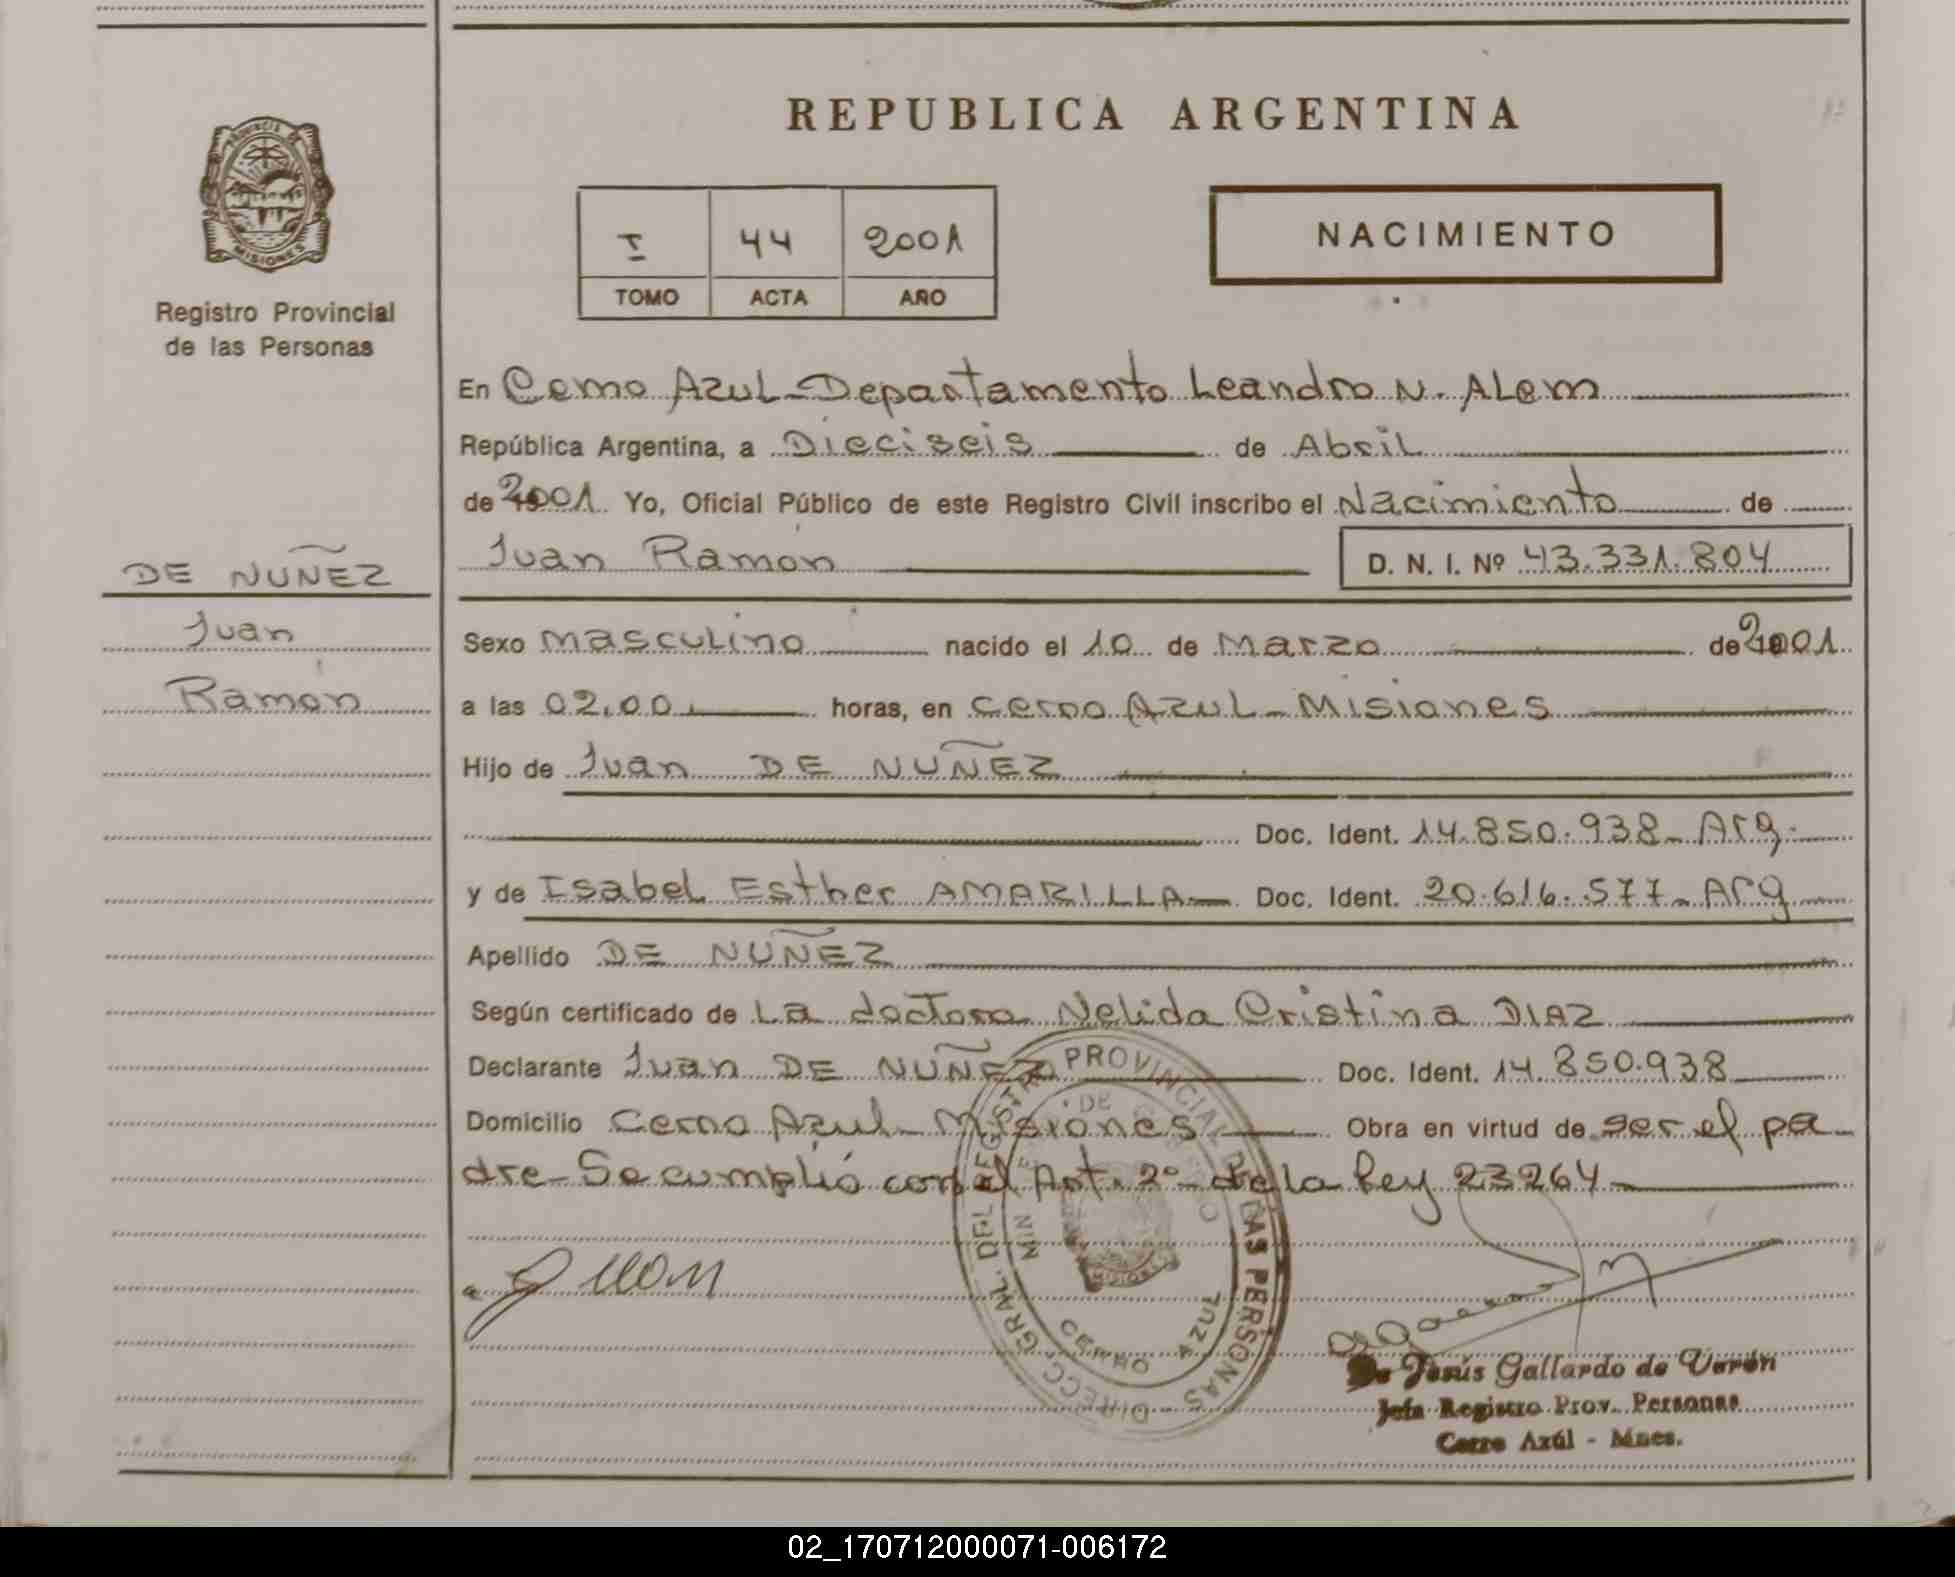 REPUBLICA ARGENTINA
PROVINCIA DE
MISIONES
Registro Provincial
de las Personas
I 44 2001
TOMO ACTA AÑO
NACIMIENTO
DE NUÑEZ
Juan
Ramón
En Cerro Azul - Departamento Leandro N. Alem
República Argentina, a Dieciseis de Abril
de 2001 Yo, Oficial Público de este Registro Civil inscribo el Nacimiento de
Juan Ramón D. N. I. Nº 43.331.804
Sexo masculino nacido el 10 de Marzo de 2001
a las 02,00 horas, en Cerro Azul - Misiones
Hijo de Juan DE NUÑEZ
Doc. Ident. 14.850.938 - Arg.
y de Isabel Esther AMARILLA Doc. Ident. 20.616.577 - Arg
Apellido DE NUÑEZ
Según certificado de La doctora Nelida Cristina DIAZ
Declarante Juan DE NUÑEZ Doc. Ident. 14.850.938
Domicilio Cerro Azul - Misiones Obra en virtud de ser el pa
dre - Se cumplió con el Art. 2º - de la ley 23264
DIRECC. GRAL. DEL REGISTRO PROVINCIAL DE LAS PERSONAS
MISIONES
CERRO AZUL
De Jesús Gallardo de Verón
Jefa Registro Prov. Personas
Cerro Azúl - Mnes.
02_170712000071-006172